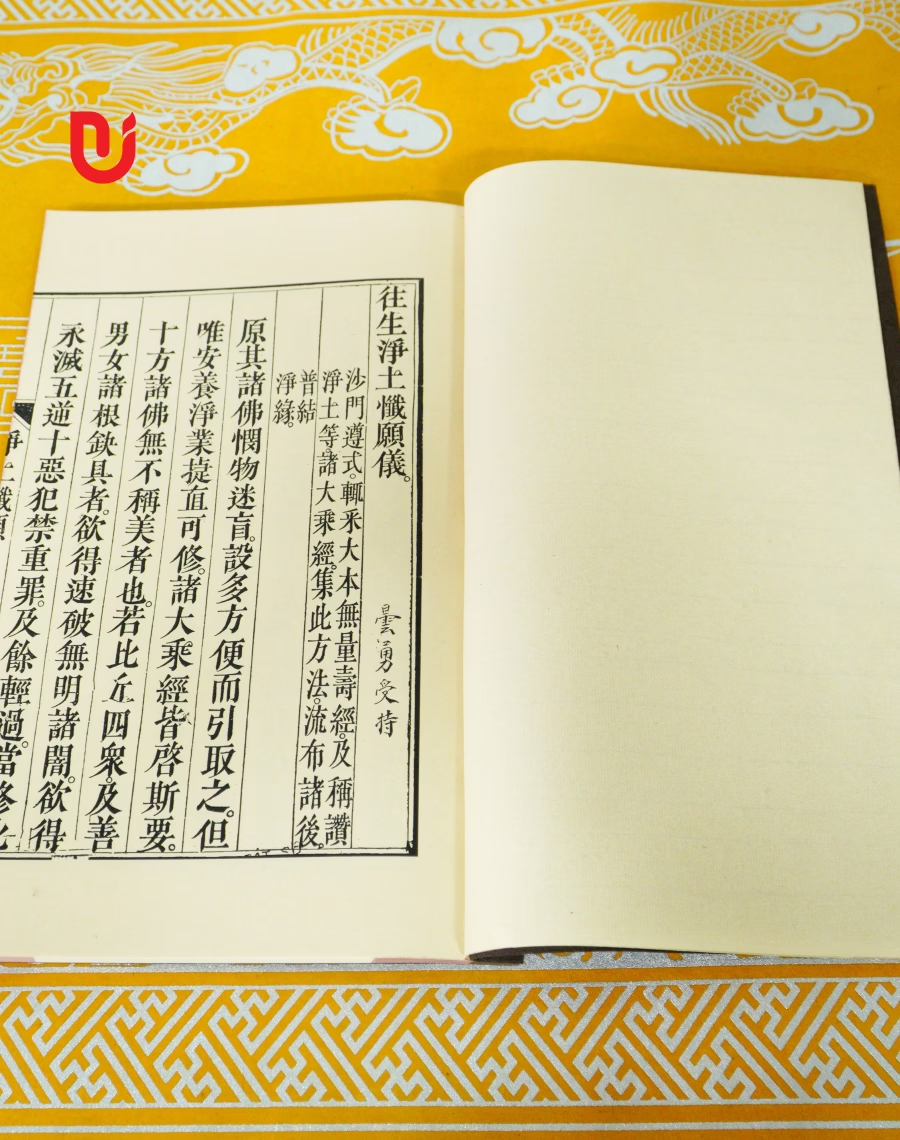 往生淨土懺願儀。
曇勇受持
沙門遵式。輒釆大本無量壽經。及稱讚
淨土等諸大乘經。集此方法。流布諸後。
普結
淨緣。
原其諸佛憫物迷盲。設多方便而引取之。但
唯安養淨業㨗直可修。諸大乘經皆啓斯要。
十方諸佛無不稱美者也。若比丘四衆。及善
男女諸根鈌具者。欲得速破無明諸闇。欲得
永滅五逆十惡犯禁重罪。及餘輕過。當修